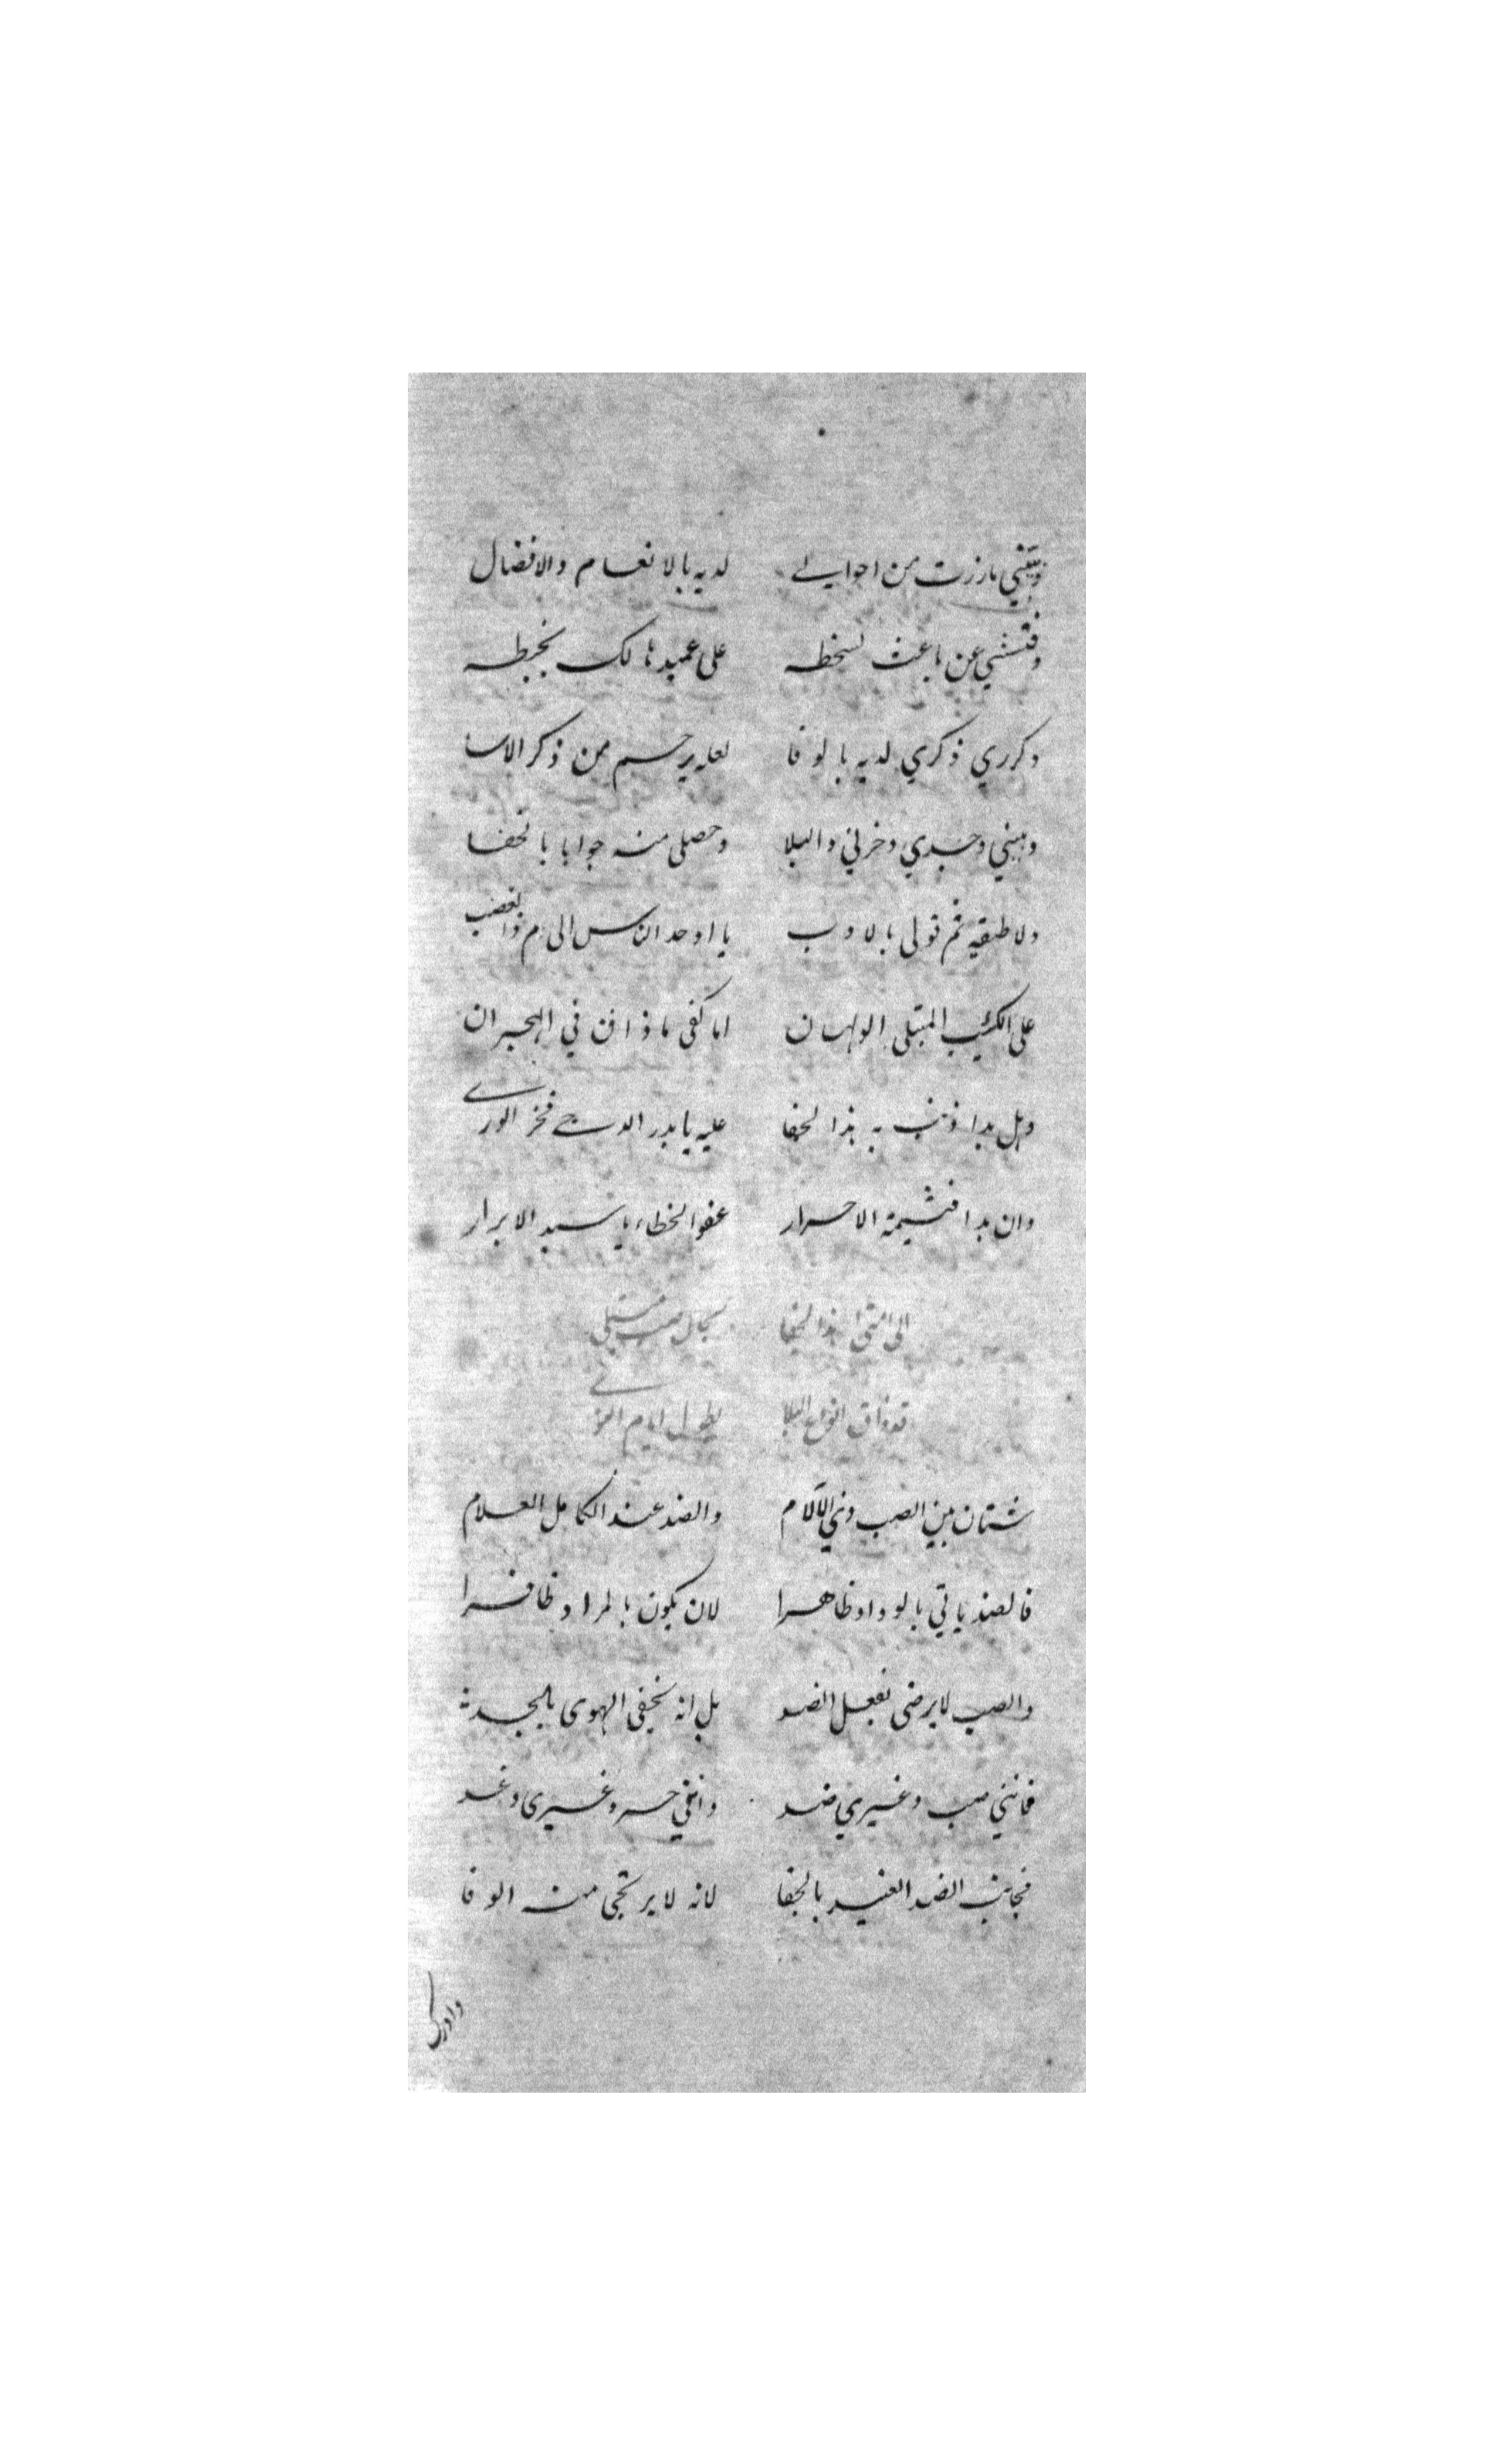 وبيني ما رزت من احوالي لديه بالانعام والافضال
وفتشي عن باعث لسخطه على عميد هالك بخبطه
وكرري ذكري لديه بالوفا لعله يرحم من ذكر الاسا
وبيني وجدي وحزني والبلا وحصلي منه جوابا بالخفا
ولاطفيه ثم قولي بالادب يا اوحد الناس الى م ذا الغضب
على الكئيب المبتلى الولهان اما كفى ما ذاق في الهجران
وهل بدا ذنب به هذا الجفا عليه يا بدر الدجى فخر الورى
وان بدا فشيمة الاحرار عفو الخطاء يا سيد الابرار
الى متى هذا الجفا بحال صب مبتلى
قد ذاق انواع البلا بطول ايام
شتان بين الصب ذي الآلام والضد عند الكامل العلام
فالضد ياتي بالوداد ظاهرا لان يكون بالمراد ظافرا
والصب لا يرضى بفعل الضد بل انه يخفي الهوى بالجد
فانني صب وغيري ضد وانني حر وغيري وغد
فجانب الضد العنيد بالجفا لانه لا يرتجى منه الوفا
وادرك